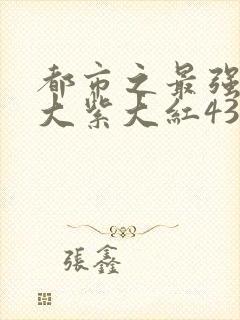 都市之最强
大紫大红43
张鑫